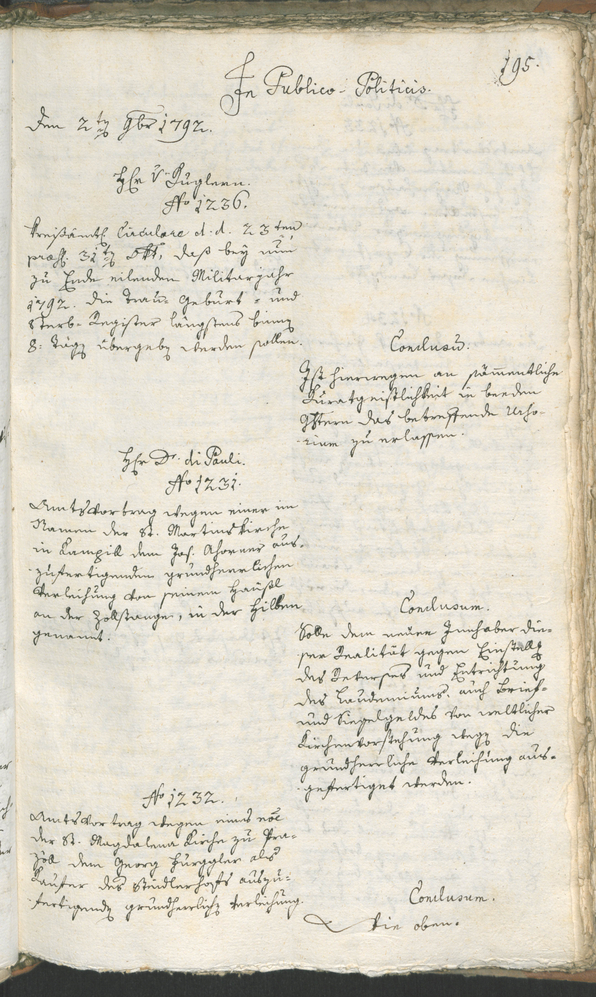 195.
In Publico-Politicis.
Den 2tn 9br 1792.
Hr v. Kuglern.
No 1236.
Kreisämtl. Circulare d. d. 23ten
præs. 31tn Okt, daß bey nun
zu Ende eilenden Militarjahr
1792. die Trau- Geburt- und
Sterb-Register längstens binnen
8. Tägn übergebn werden sollen.
Conclusum.
Ist hierwegen an sämmentliche
Kuratgeistlichkeit in beeden
das betreffende
zu erlassen.
Hr Dr. di Pauli.
No 1231.
Amtsvortrag wegen einer im
Namen der St. Martinskirche
in Kampill dem Jos. Ahorner aus-
zufertigenden grundherrlichen
Verleihung von seinem Häusl
an der Zollstange, in der Hilben
genannt.
Conclusum.
Solle dem neuen Innhaber die-
ser Realität gegen Einstellg
des Reverses und Entrichtung
des Laudemiums, auch Brief-
und Siegelgeldes von weltlicher
Kirchenvorstehung wegn die
grundherrliche Verleihung aus-
gefertiget werden.
No 1232.
Amtsvortrag wegen eines
der St. Magdalena Kirche zu Pra-
zöll dem Georg Hurggler als
Käufer des auszu-
fertigendn grundherrlichn Verleihung.
Conclusum.
Wie oben.